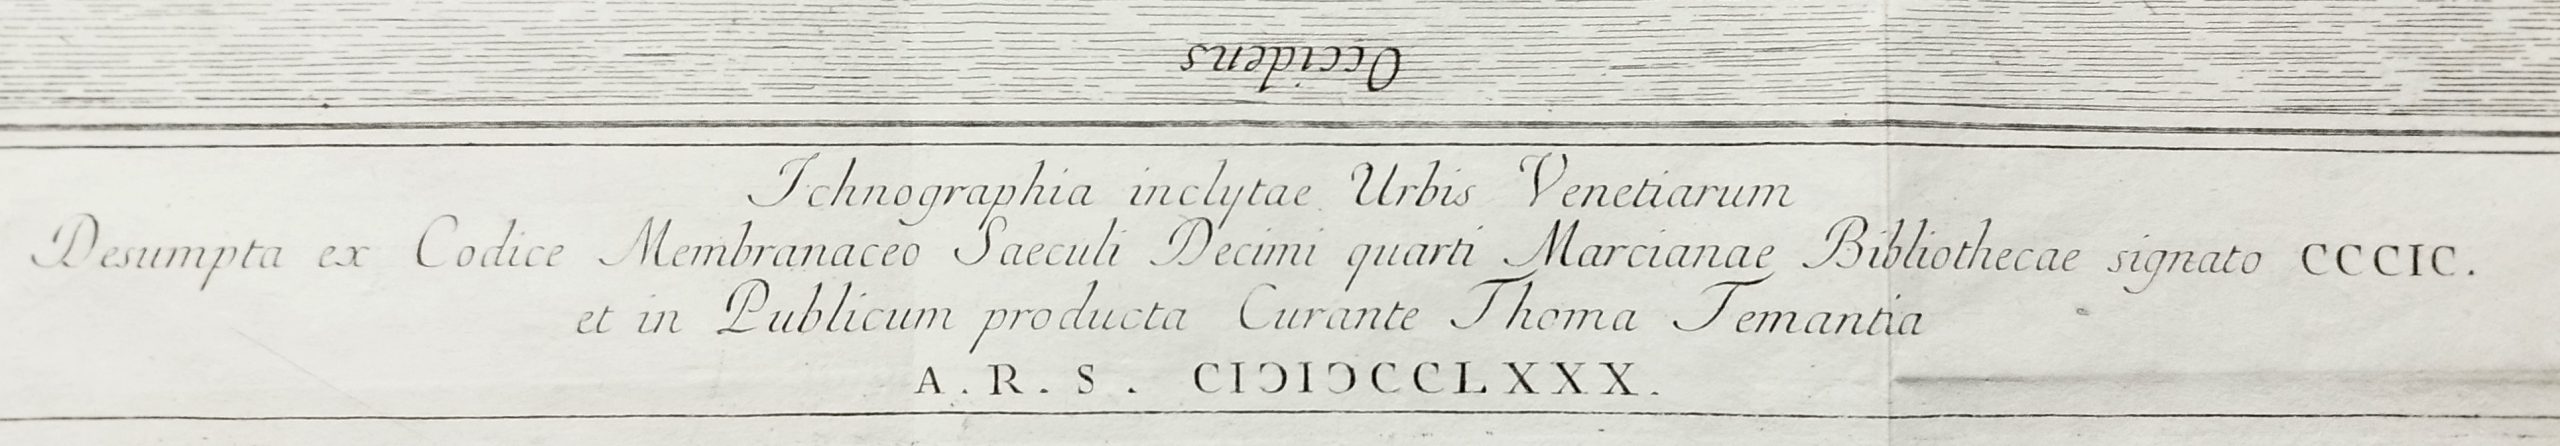 Occidens
Ichnographia inclytae Urbis Venetiarum
Desumpta ex Codice Membranaceo Saeculi Decimi quarti Marcianae Bibliothecae signato CCCIC.
et in Publicum producta Curante Thoma Temantia
A. R. S. CIↃIↃCCLXXX.